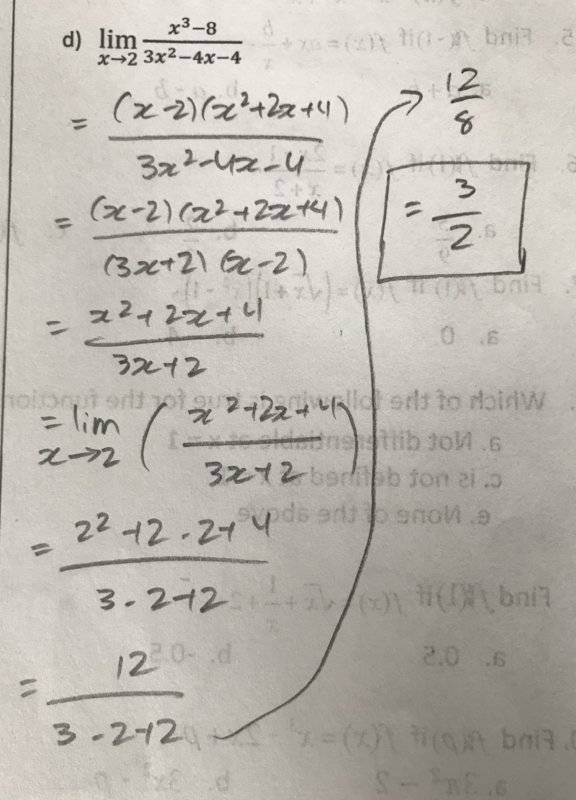 d) lim x→2 x³−8 / 3x²−4x−4
= (x-2)(x²+2x+4) / 3x²-4x-4
= (x-2)(x²+2x+4) / (3x+2)(x-2)
= x²+2x+4 / 3x+2
= lim x→2 (x²+2x+4 / 3x+2)
= 2²+2·2+4 / 3·2+2
= 12 / 3·2+2
→ 12/8
= 3/2